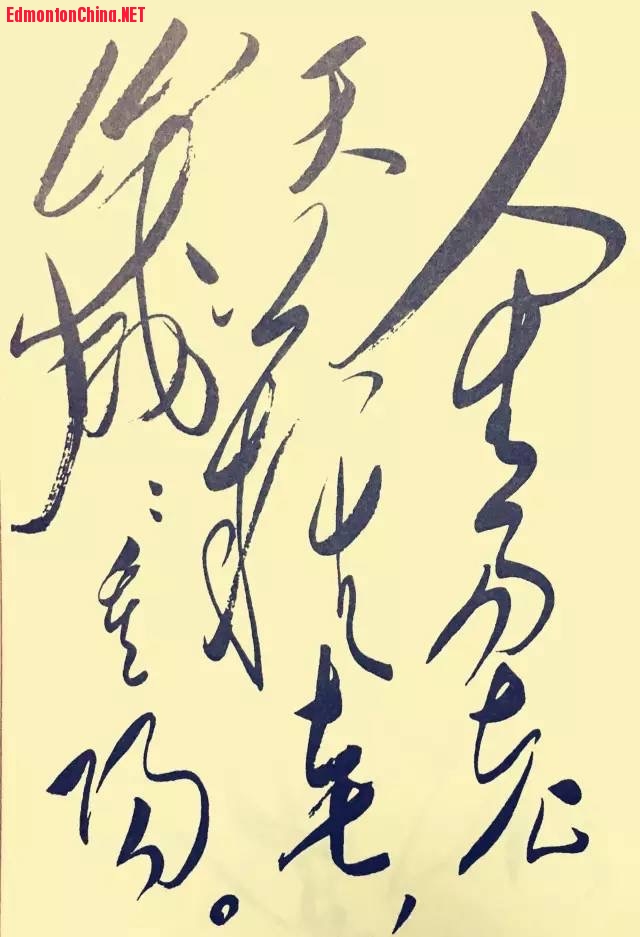 EdmontonChina.NET
人生易老
天難老，
歲〻重陽。